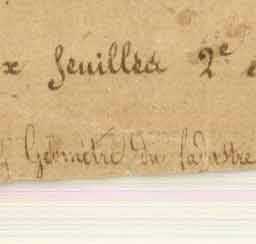 x feuilles 2e
Géomètre du Cadastre